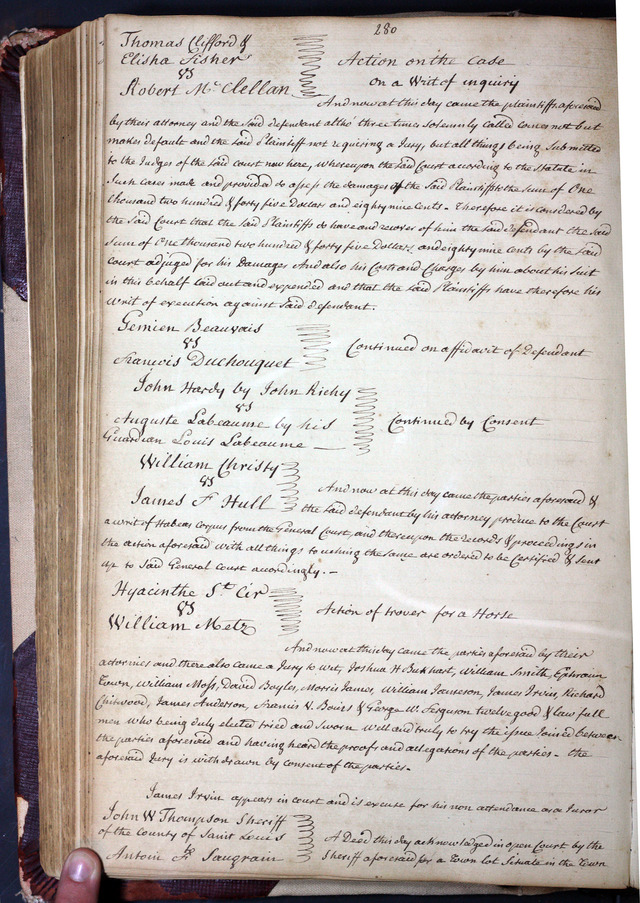 280
Thomas Clifford &
Elisha Fisher
vs
Robert Mc Clellan
Action on the Case
on a Writ of inquiry
And now at this day came the plaintiffs aforesaid
by their attorney and the said defendant altho' three times solemnly called comes not but
makes default and the said Plaintiff not requiring a Jury, but all things being Submitted
to the Judges of the said court now here, whereupon the said Court according to the Statute in
Such cases made and provided do assess the damages of the said Plaintiffs to the Sum of One
thousand two hundred & forty five Dollars and eighty nine Cents - Therefore it is considered by
the said Court that the said Plaintiffs do have and recover of him the said defendant the said
Sum of One thousand two hundred & forty five Dollars and eighty nine Cents by the said
Court adjuged for his Damages And also his Costs and Charges by him about his Suit
in this behalf laid out and expended and that the said Plaintiffs have therefore his
writ of execution against said defendant.
Gemien Beauvais
vs
Francois Duchouquet
Continued on affidavit of Defendant
John Hardy by John Richy
vs
Auguste Labeaume by his
Guardian Louis Labeaume
Continued by Consent
William Christy
vs
James F Hull
And now at this day came the parties aforesaid &
the said defendant by his attorney produce to the Court
a writ of Habeas corpus from the General Court, and thereupon the records & proceedings in
the action aforesaid with all things touching the same are ordered to be Certified & sent
up to said General Court accordingly. -
Hyacinthe St Cir
vs
William Metz
Action of trover for a Horse
And now at this day came the parties aforesaid by their
attornies and there also came a Jury to wit, Joshua H Burkhart, William Smith, Ephraim
Town, William Moss, David Boyles, Morris James, William Jameson, James Irvin, Richard
Chitwood, James Anderson, Francis V Bouis & George W. Ferguson twelve good & law full
men who being duly elected tried and Sworn well and truly to try the issue Joined between
the parties aforesaid and having heard the proofs and allegations of the parties - the
aforesaid Jury is withdrawn by consent of the parties.
James Irvin appears in court and is excuse for his non attendance as a Juror
John W Thompson Sheriff
of the County of Saint Louis
to
Antoin F Saugrain
A Deed this day acknowledged in open Court by the
Sheriff aforesaid for a Town lot Situate in the Town